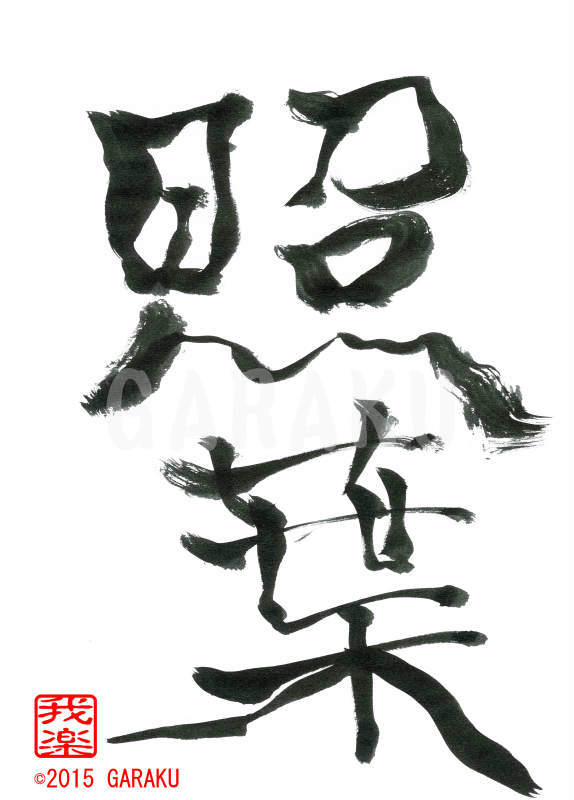 照葉
GARAKU
我楽
©2015 GARAKU